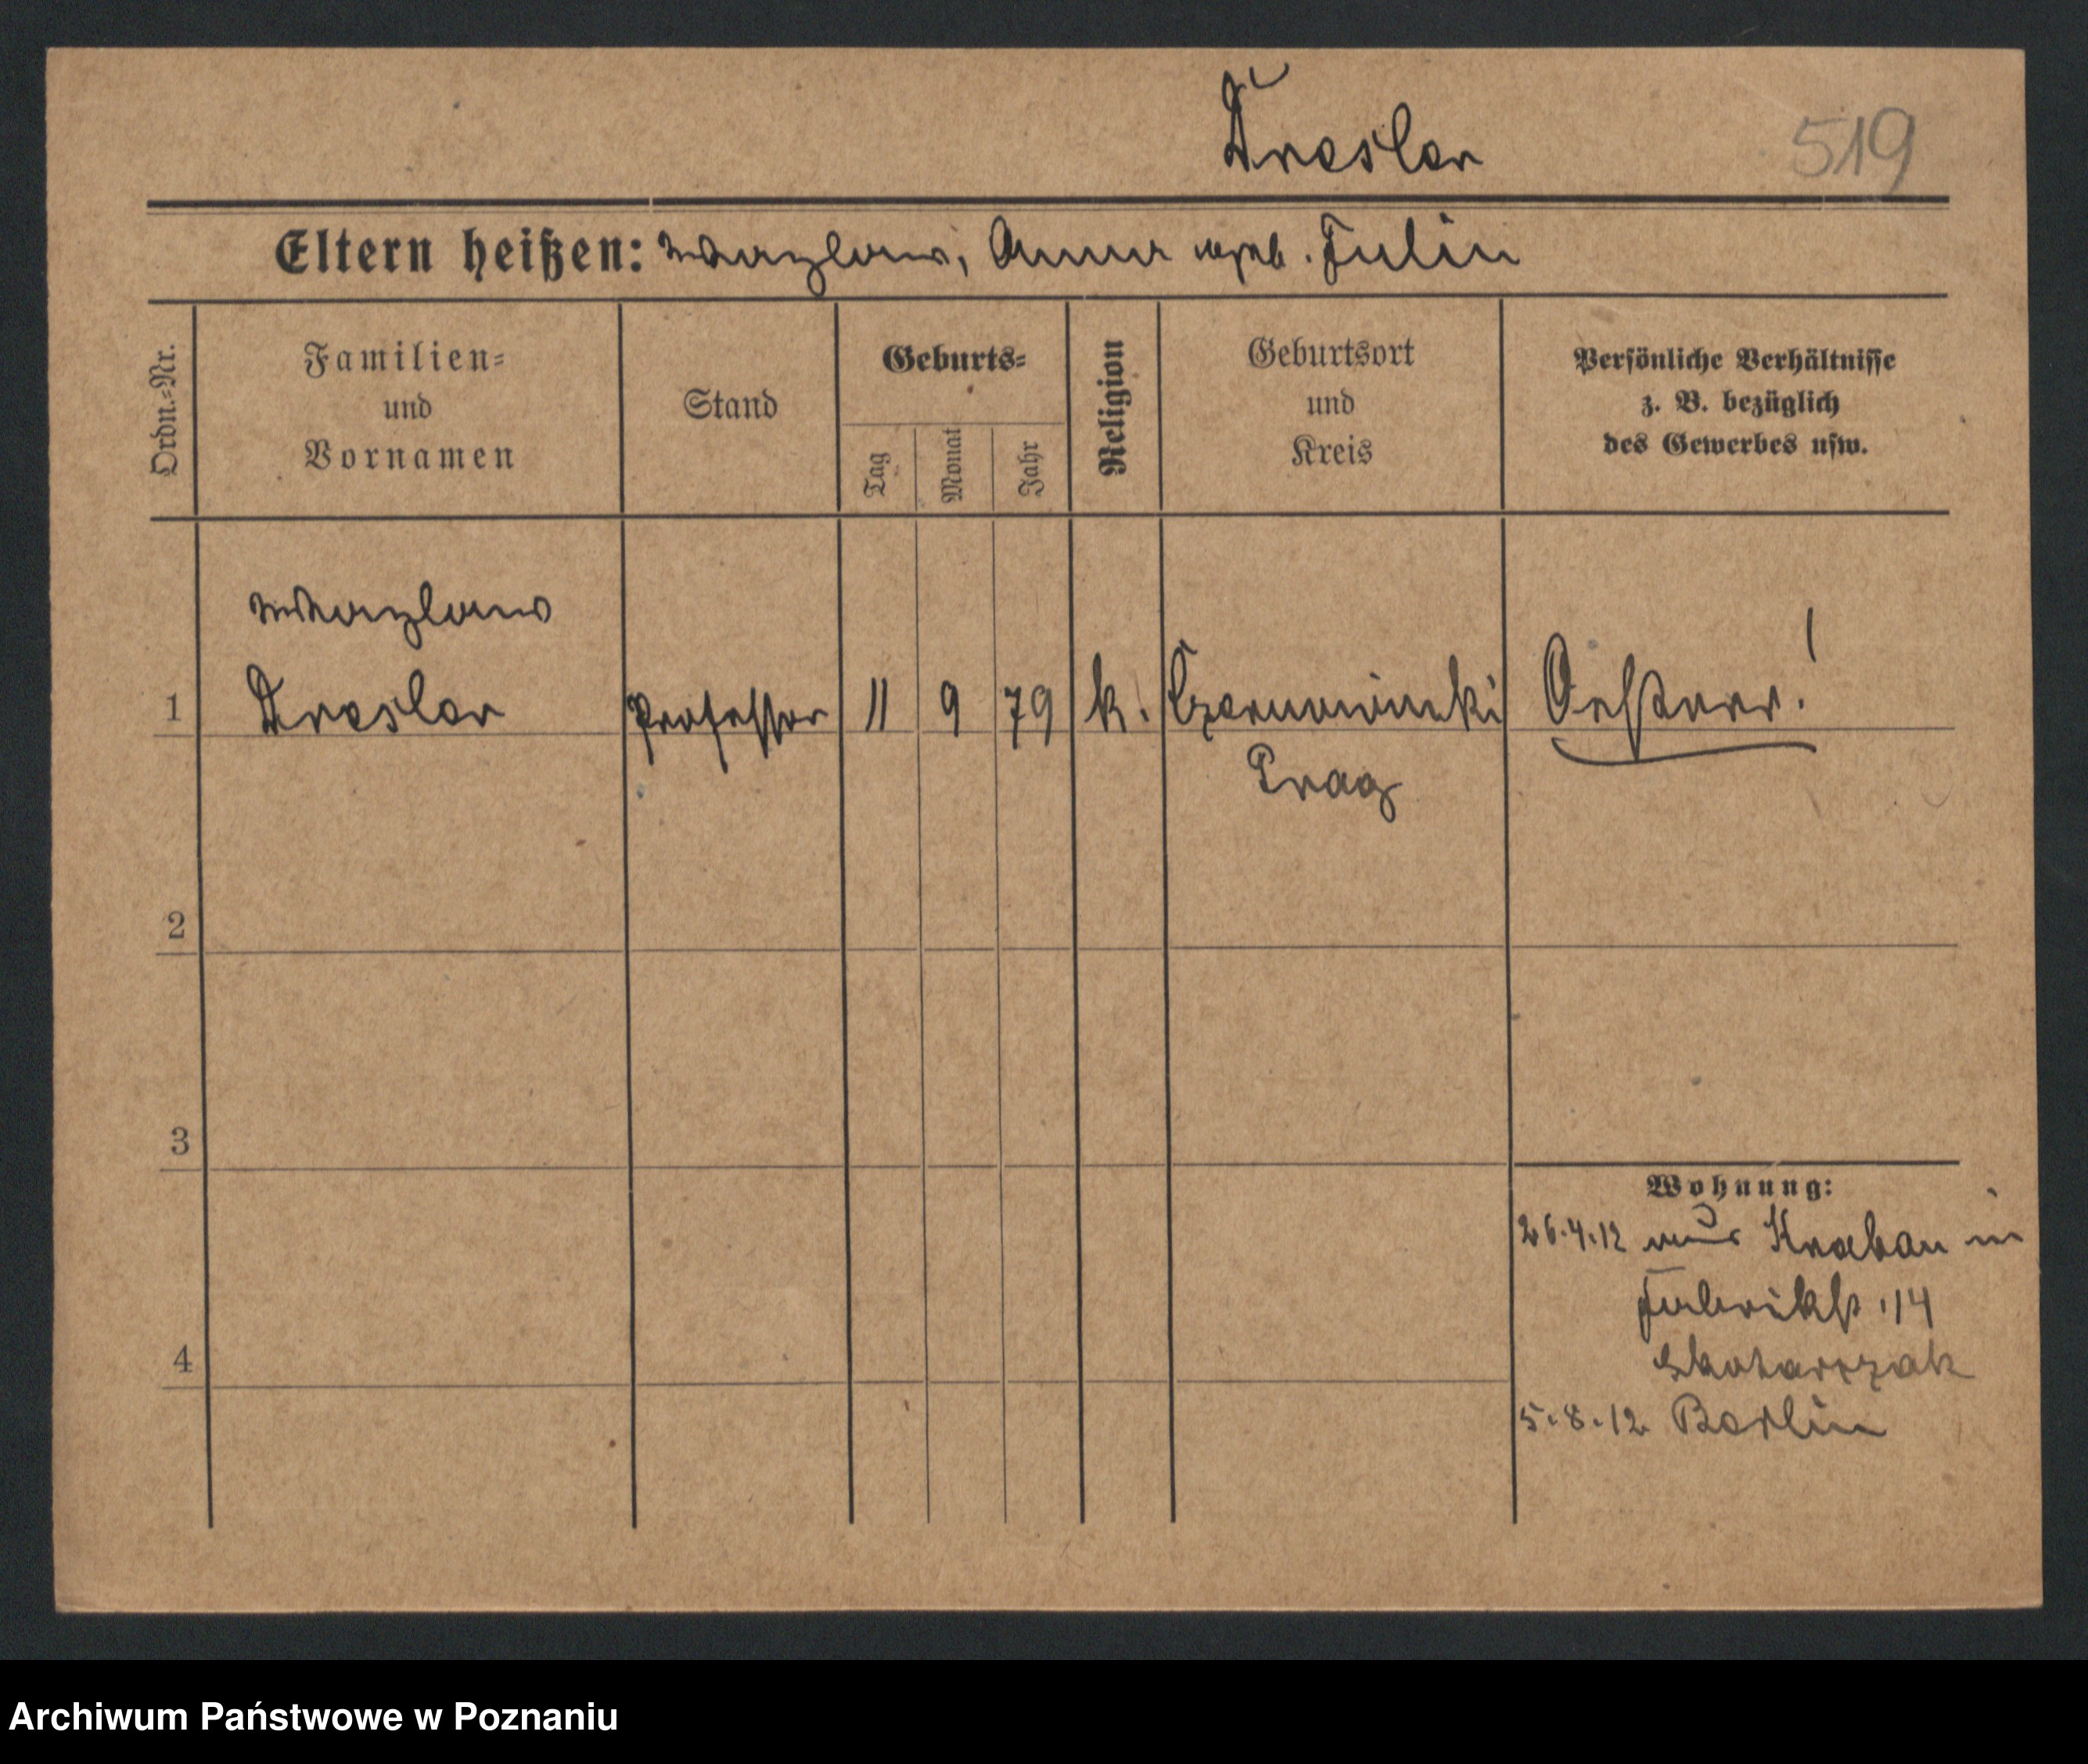 Dresler
519
Eltern heißen: Wenzlaus, Anna geb. Fulin
Ordn.-Nr.
Familien-
und
Vornamen
Stand
Geburts-
Tag
Monat
Jahr
Religion
Geburtsort
und
Kreis
Persönliche Verhältnisse
z. B. bezüglich
des Gewerbes usw.
Wenzlaus
1 Dresler Professor 11 9 79 k. Oesterr.!
Prag
2
3
4
Wohnung:
26.4.12 aus in
Fabrikstr. 14
Skotarczak
5.8.12 Berlin
Archiwum Państwowe w Poznaniu